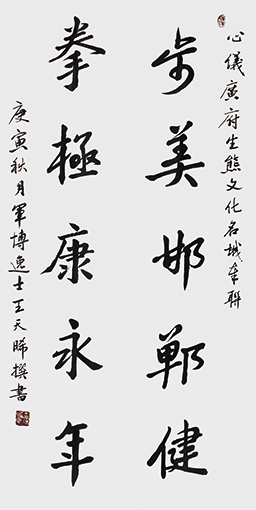 心儀廣府生態文化名城奉聯
步美邯鄲健
拳極康永年
庚寅秋月軍博逸士王天晞撰書